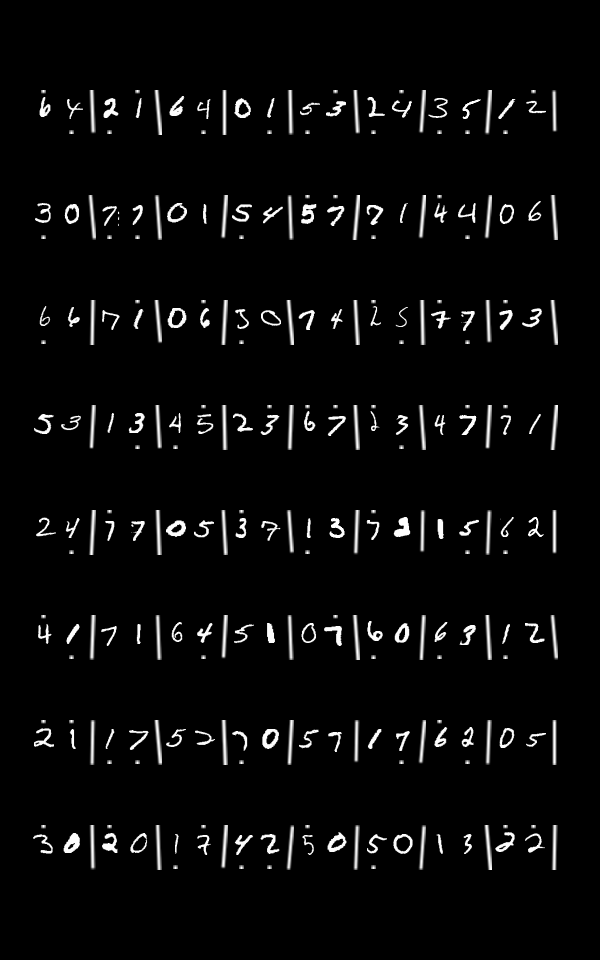 6 4 | 2 1 | 6 4 | 0 1 | 5 3 | 2 4 | 3 5 | 1 2 |
3 0 | 7 7 | 0 1 | 5 4 | 5 7 | 7 1 | 4 4 | 0 6 |
6 6 | 7 1 | 0 6 | 5 0 | 7 4 | 2 5 | 7 7 | 7 3 |
5 3 | 1 3 | 4 5 | 2 3 | 6 7 | 2 3 | 4 7 | 7 1 |
2 4 | 7 7 | 0 5 | 3 7 | 1 3 | 7 2 | 1 5 | 6 2 |
4 1 | 7 1 | 6 4 | 5 1 | 0 7 | 6 0 | 6 3 | 1 2 |
2 1 | 1 7 | 5 2 | 7 0 | 5 7 | 1 7 | 6 2 | 0 5 |
3 0 | 2 0 | 1 7 | 4 2 | 5 0 | 5 0 | 1 3 | 2 2 |